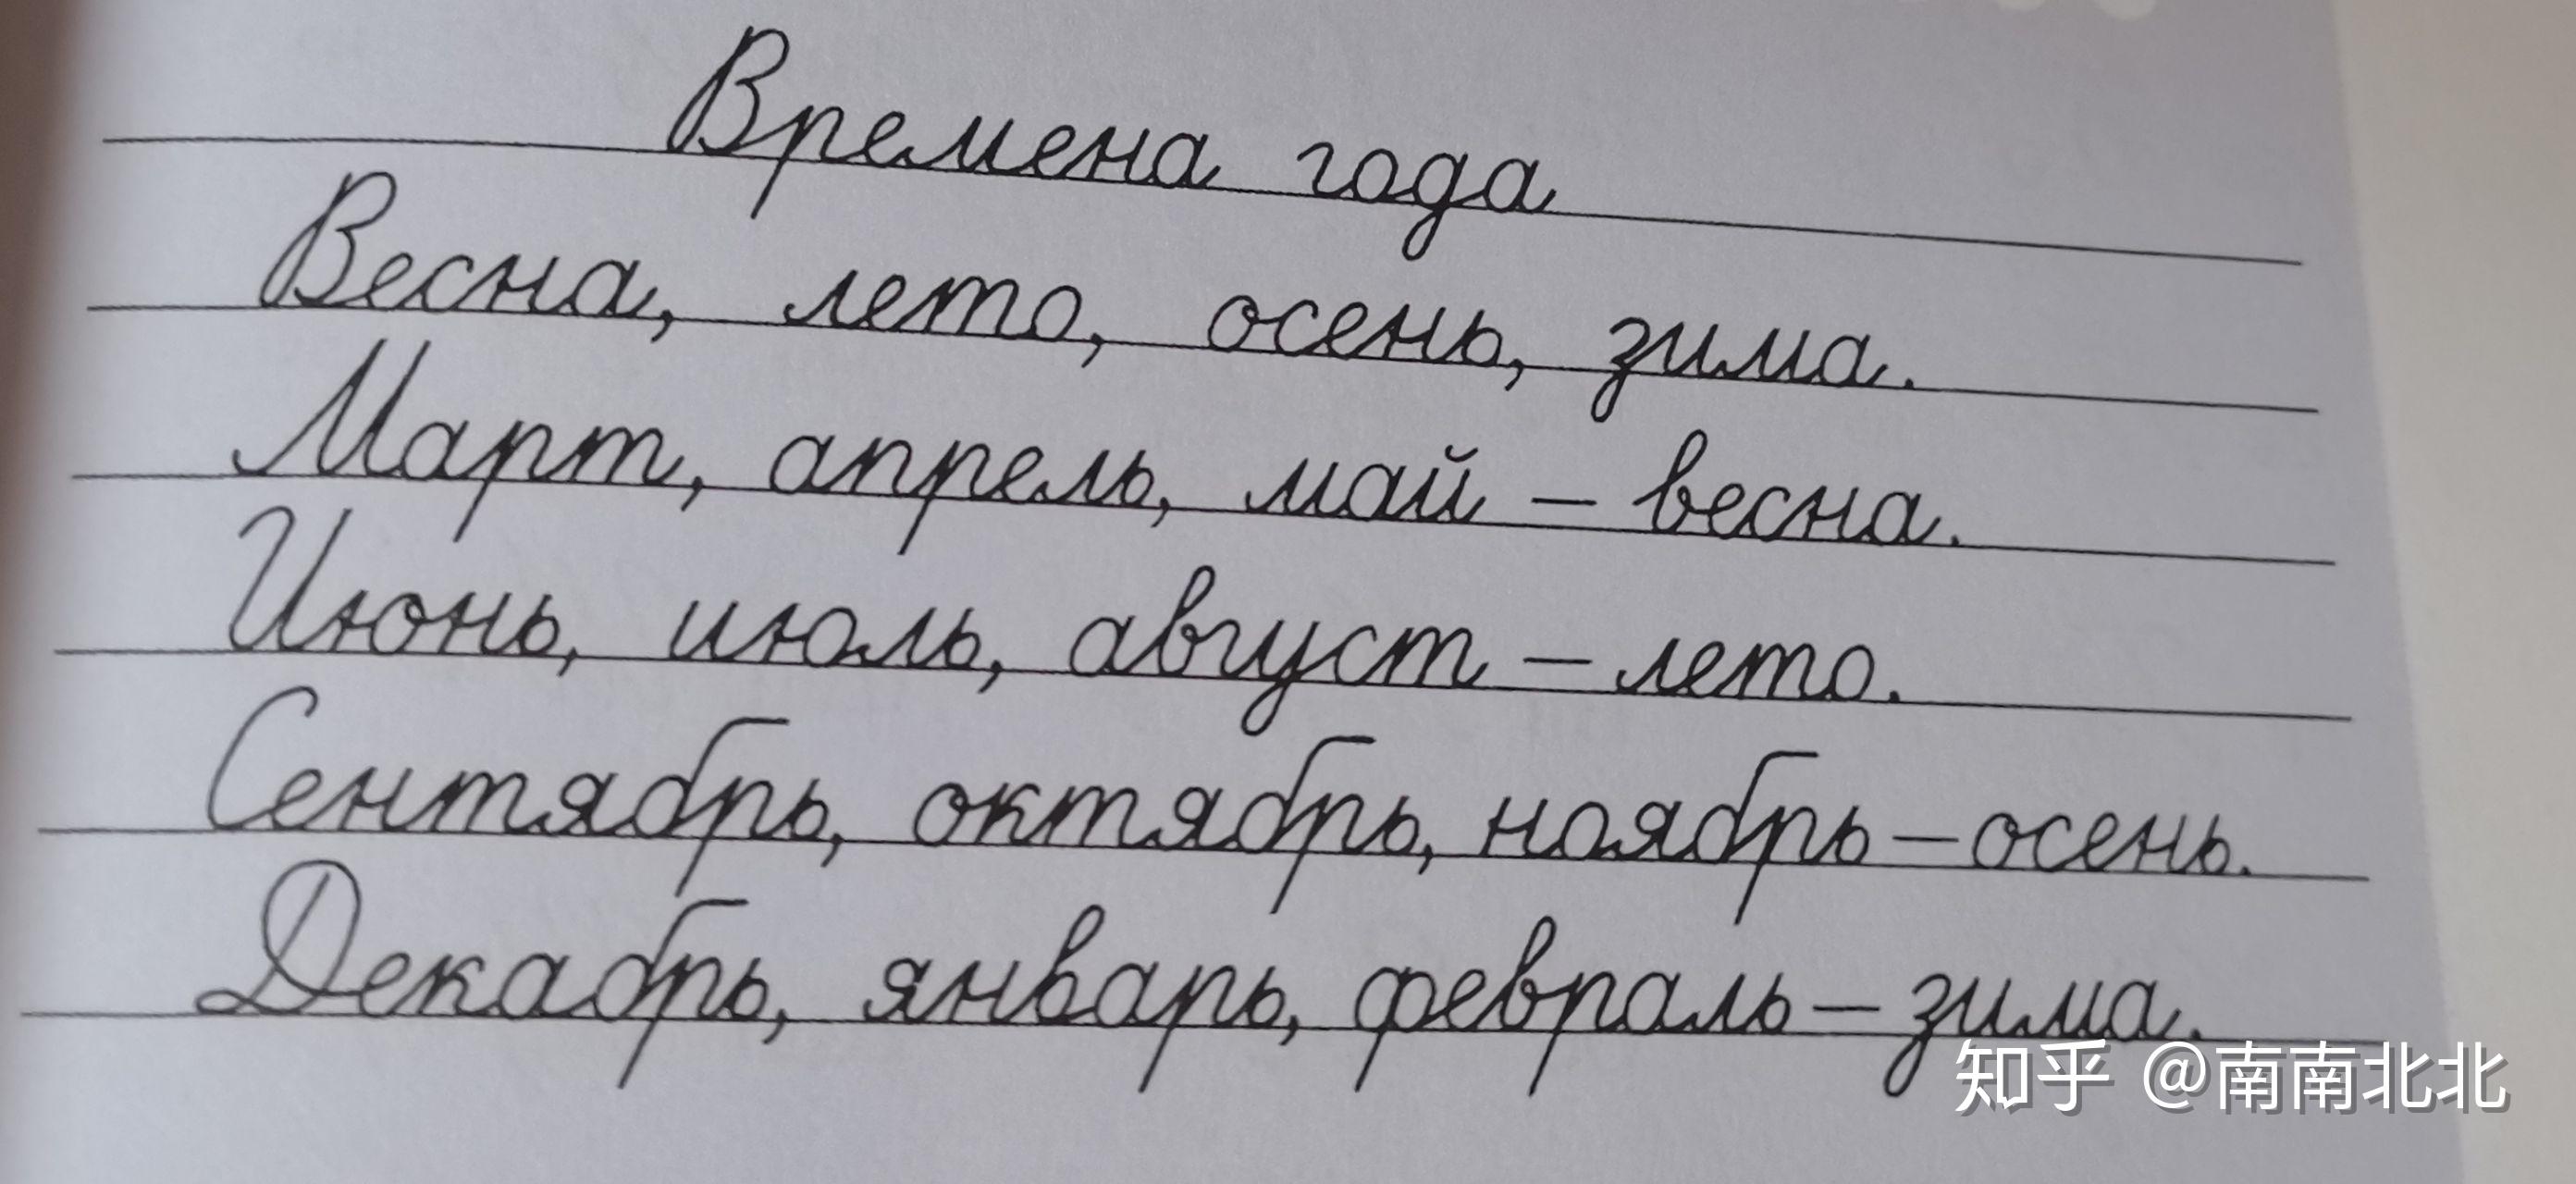 Времена года
Весна, лето, осень, зима.
Март, апрель, май – весна.
Июнь, июль, август – лето.
Сентябрь, октябрь, ноябрь – осень.
Декабрь, январь, февраль – зима.
知乎 @南南北北